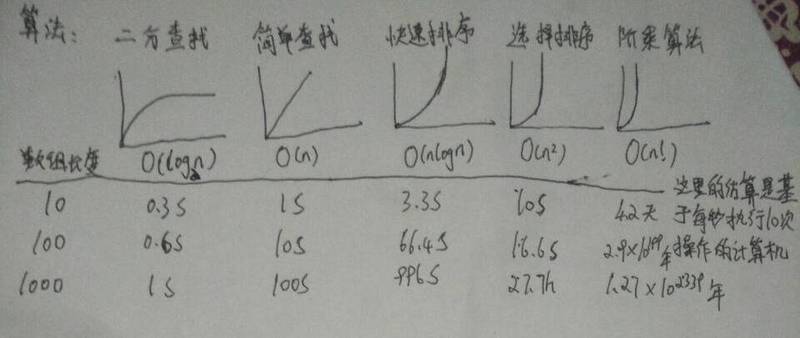 算法: 二分查找 简单查找 快速排序 选择排序 阶乘算法
数组长度 O(log₂n) O(n) O(nlogn) O(n²) O(n!)
10 0.3S 1S 3.3S 10S 4.2天
100 0.6S 10S 66.4S 16.6S 2.9×10¹⁴⁹年
1000 1S 100S 996S 27.7h 1.27×10²⁵³⁹年
这里的估算是基
于每秒执行10次
操作的计算机